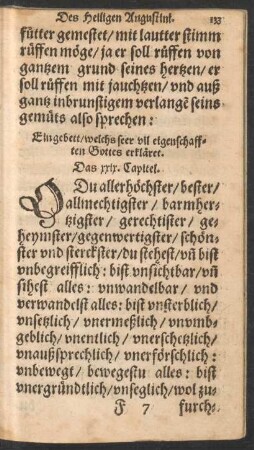 Des Heiligen Augustini. 133
fütter gemestet/ mit lautter stimm
rüffen möge/ ja er soll rüffen von
gantzem grund seines hertzen/ er
soll rüffen mit jauchtzen/ vnd auß
gantz inbrunstigem verlangē seins
gemüts also sprechen:
Ein gebett/ welchs seer vil eigenschaff-
ten Gottes erkläret.
Das xxix. Capitel.
O Du allerhöchster/ bester/
allmechtigster/ barmher-
tzigster/ gerechtister/ ge-
heymster/ gegenwertigster/ schön-
ster vnd sterckster/ du stehest/ vn̄ bist
vnbegreifflich: bist vnsichtbar/ vn̄
sihest alles: vnwandelbar/ vnd
verwandelst alles: bist vnsterblich/
vnsetzlich/ vnermeßlich/ vnvmb-
geblich/ vnentlich/ vnerschetzlich/
vnaußsprechlich/ vnerförschlich:
vnbewegt/ bewegestu alles: bist
vnergründtlich/ vnseglich/ wol zu-
F 7 furch-